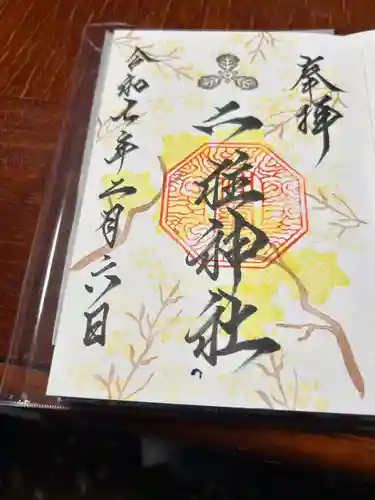 奉拝
二荏神社
令和七年二月六日